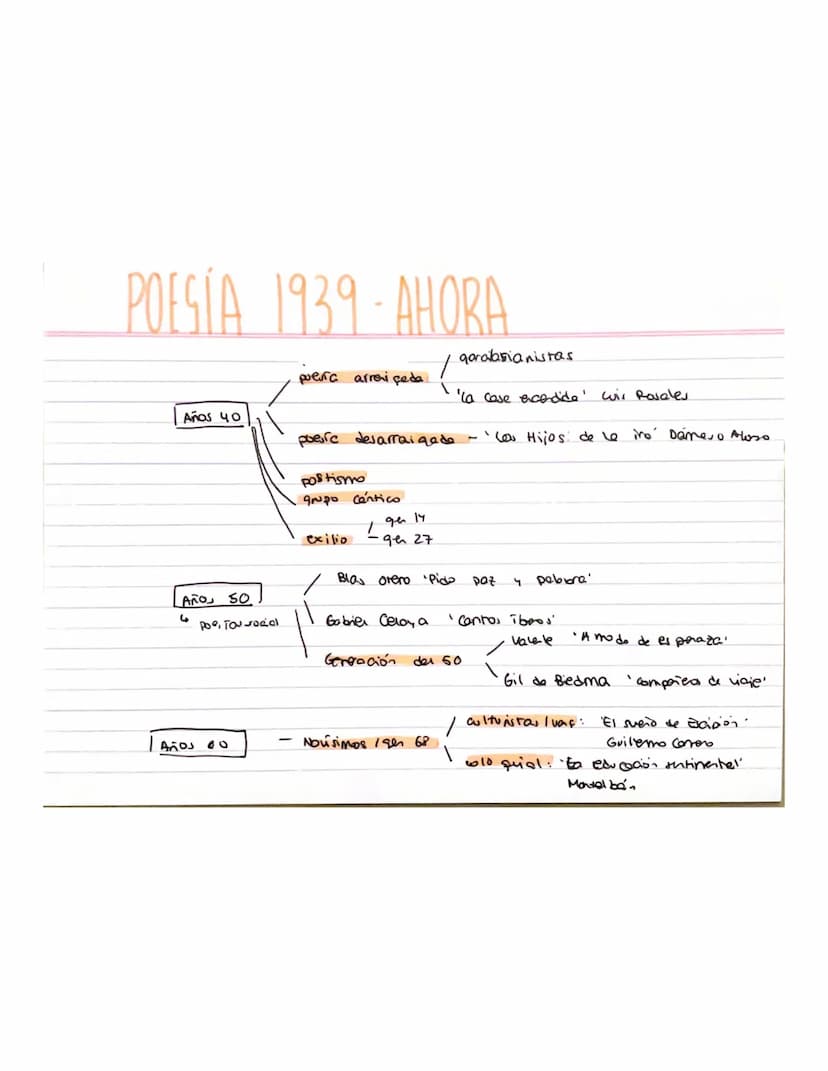 POESÍA 1939 - AHORA
garcilasianistas
poesía arraigada
'La casa encendida' Luis Rosales
Años 40
poesía desarraigada - 'Los Hijos de la ira' Dámaso Alonso
postismo
grupo cántico
gen 14
exilio - gen 27
Blas Otero 'Pido paz y palabra'
Años 50
↳ poesía social
Gabriel Celaya 'Cantos íberos'
Valente 'A modo de esperanza'
Generación del 50
Gil de Biedma 'compañeros de viaje'
culturistas / vang: 'El sueño de Escipión'
Años 60 - Novísimos / gen 68
Guillermo Carnero
coloquial: 'La educación sentimental'
Montalbán